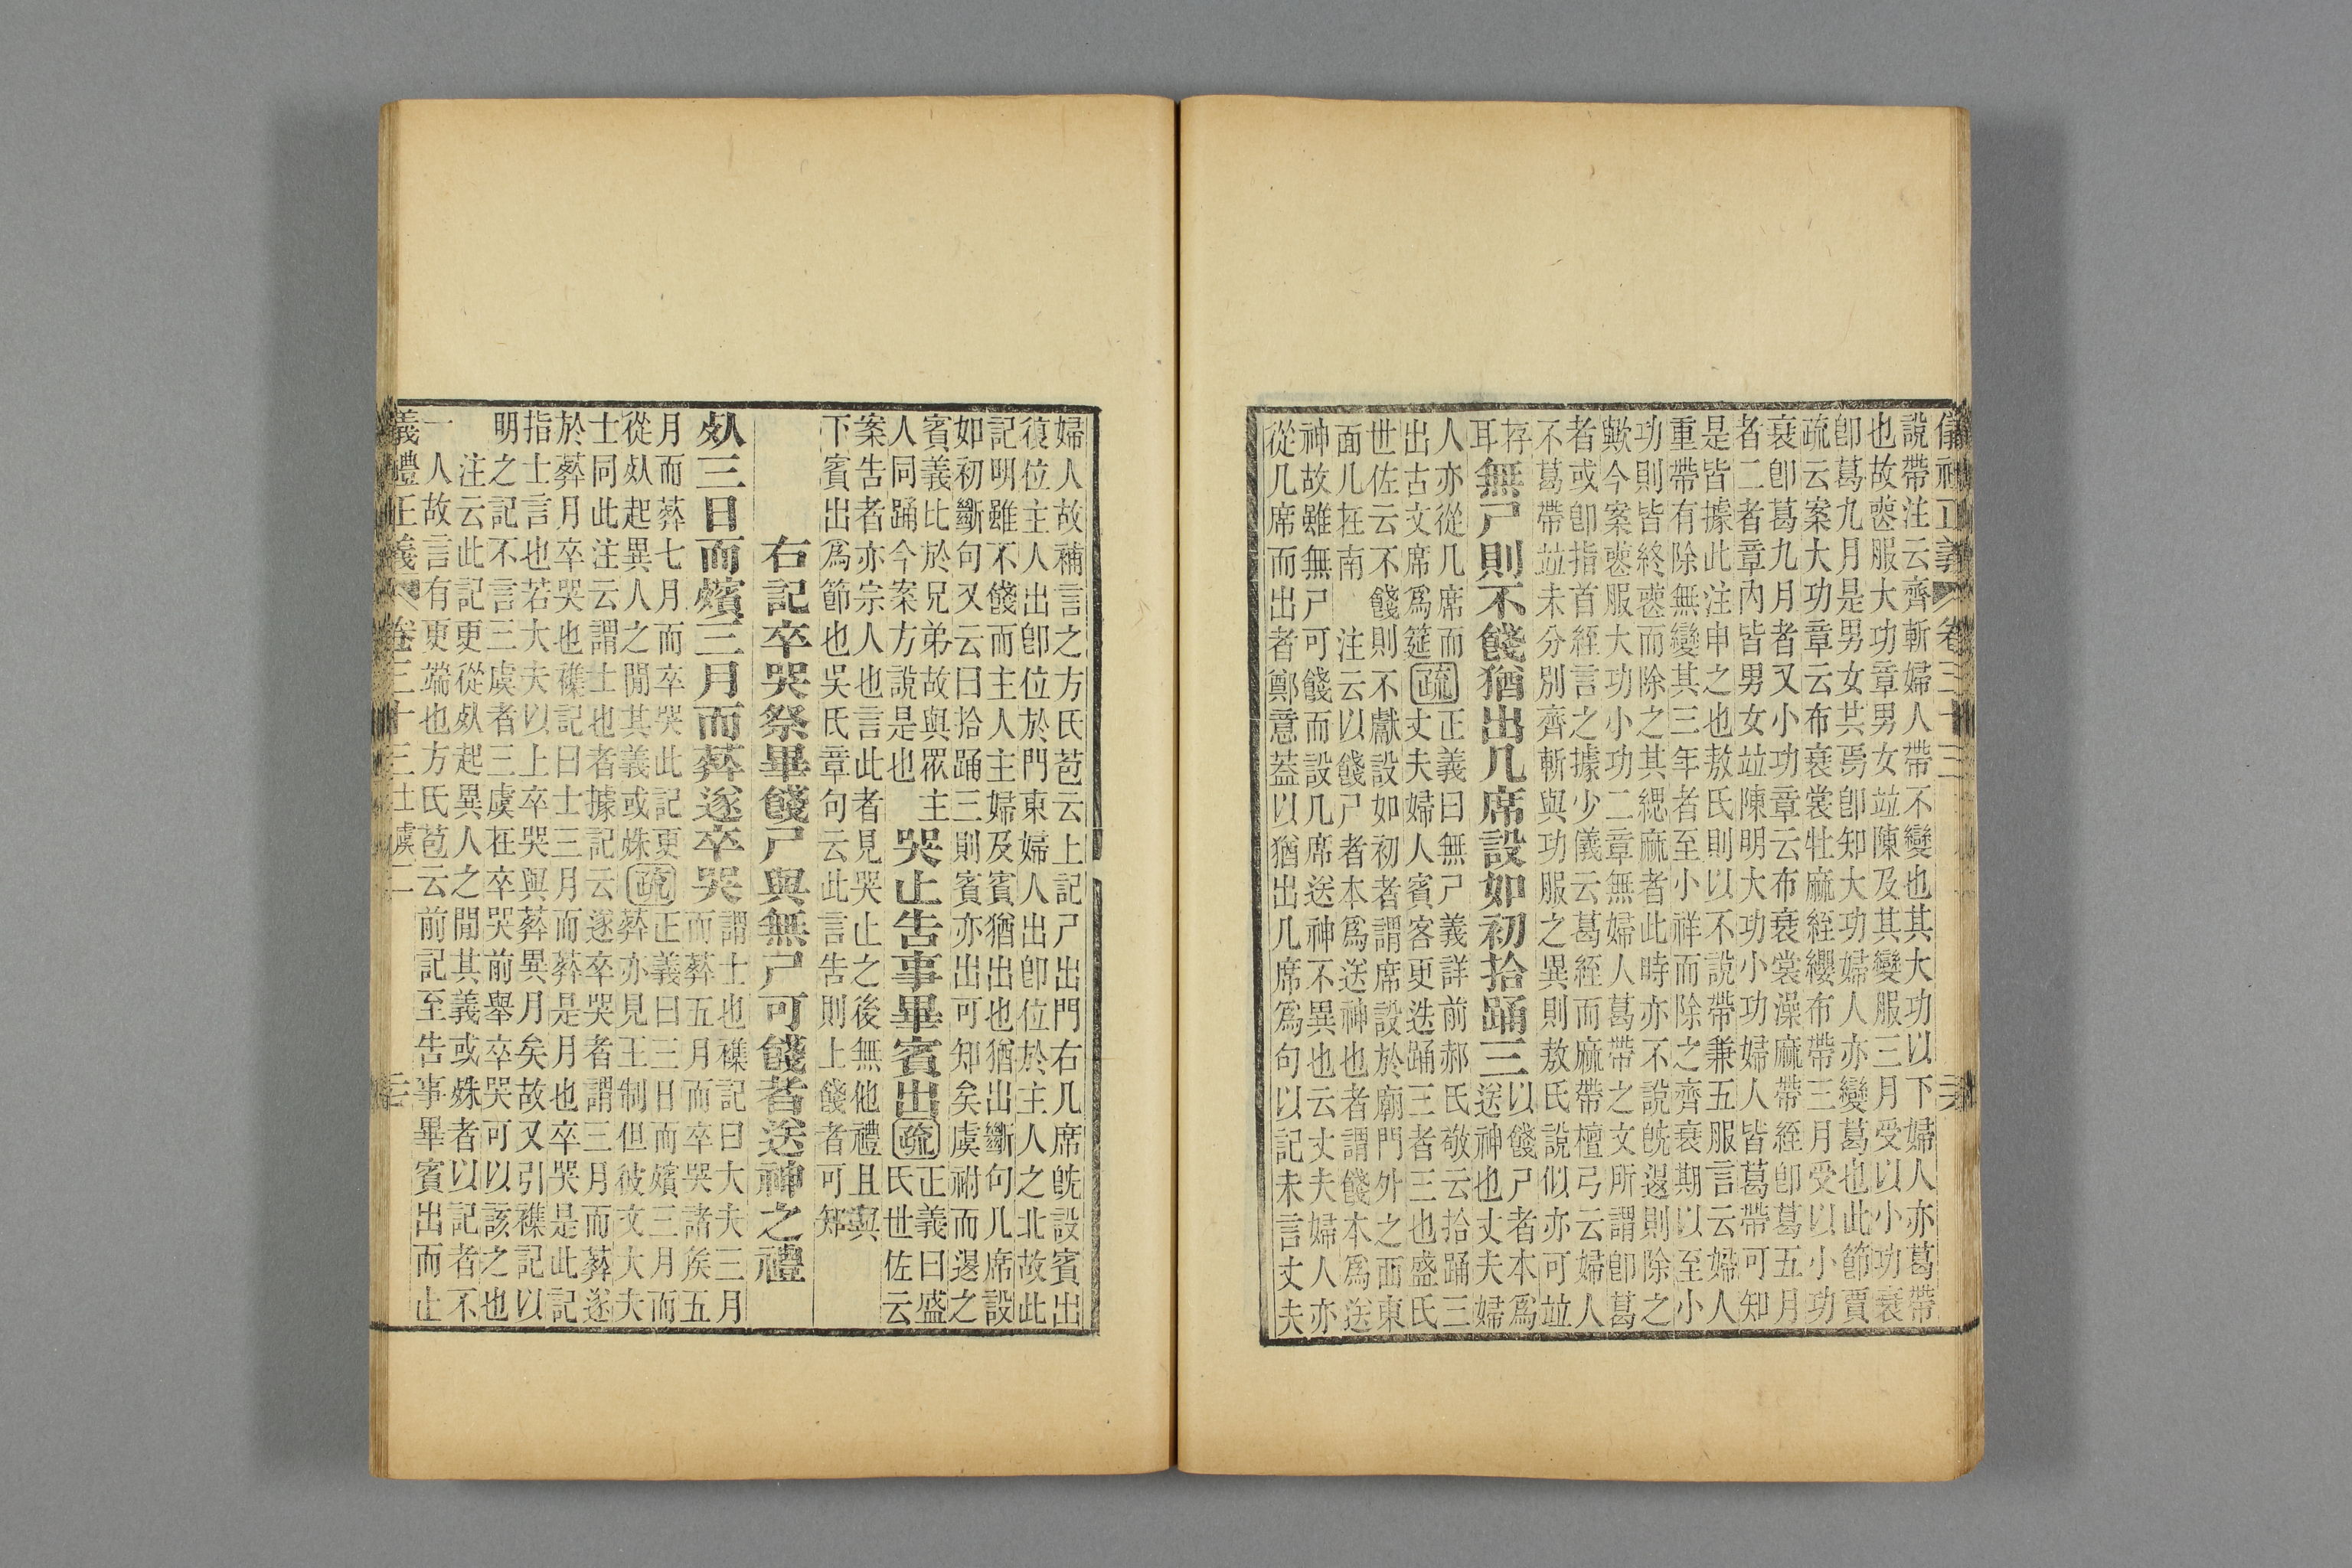 說帶注云齊斬婦人帶不變也其大功以下婦人亦葛帶
也故喪服大功章男女竝陳及其變服三月受以小功衰
卽葛九月是男女共爲卽知大功婦人亦變葛也此節賈
疏云案大功章云布衰裳牡麻絰纓布帶三月受以小功
衰卽葛九月者又小功章云布衰裳澡麻帶絰卽葛五月
者二者章內皆男女竝陳明大功小功婦人皆葛帶可知
是皆據此注申之也敖氏則以不說帶兼五服言云婦人
重帶有除無變其三年者至小祥而除之齊衰期以至小
功則皆終喪而除之其緦麻者此時亦不說旣退則除之
歟今案喪服大功小功二章無婦人葛帶之文所謂卽葛
者或卽指首絰言之據少儀云葛絰而麻帶檀弓云婦人
不葛帶竝未分別齊斬與功服之異則敖氏說似亦可竝
存
耳
無尸則不餞猶出几席設如初拾踊三
以餞尸者本爲
送神也丈夫婦
人亦從几席而
出古文席爲筵
疏
正義曰無尸義詳前郝氏敬云拾踊三
丈夫婦人賓客更迭踊三者三也盛氏
世佐云不餞則不獻設如初者謂席設於廟門外之西東
面几在南 注云以餞尸者本爲送神也者謂餞本爲送
神故雖無尸可餞而設几席送神不異也云丈夫婦人亦
從几席而出者鄭意蓋以猶出几席爲句以記未言丈夫
婦人故補言之方氏苞云上記尸出門右几席旣設賓出
復位主人出卽位於門東婦人出卽位於主人之北故此
記明雖不餞而主人主婦及賓猶出也猶出斷句几席設
如初斷句又云曰拾踊三則賓亦出可知矣虞祔而退之
賓義比於兄弟故與眾主
人同踊今案方說是也
哭止告事畢賓出
疏
正義曰盛
氏世佐云
案告者亦宗人也言此者見哭止之後無他禮且與
下賓出爲節也吳氏章句云此言告則上餞者可知
右記卒哭祭畢餞尸與無尸可餞者送神之禮
死三日而殯三月而葬遂卒哭
謂士也襍記曰大夫三月
而葬五月而卒哭諸侯五
月而葬七月而卒哭此記更
從死起異人之閒其義或殊
疏
正義曰三日而殯三月而
葬亦見王制但彼文大夫
士同此注云謂士也者據記云遂卒哭者謂三月而葬遂
於葬月卒哭也襍記曰士三月而葬是月也卒哭是此記
指士言也若大夫以上卒哭與葬異月矣故又引襍記以
明之記不言三虞者三虞在卒哭前舉卒哭可以該之也
注云此記更從死起異人之閒其義或殊者以記者不
一人故言有更端也方氏苞云前記至告事畢賓出而止
義禮正義 卷三十三士虞二